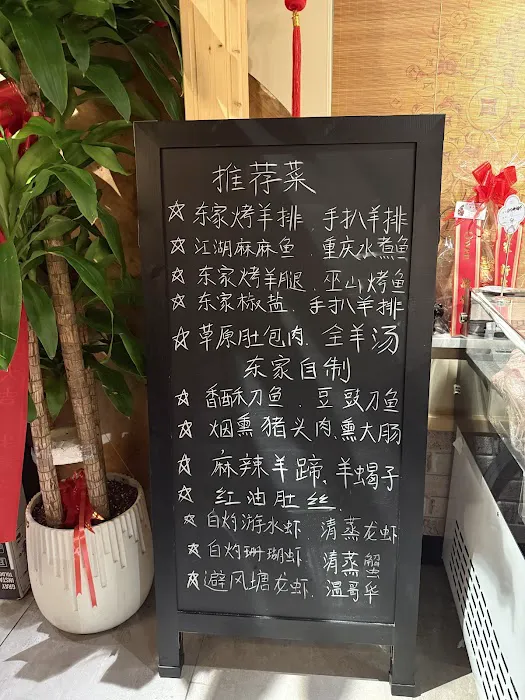 推荐菜
☆东家烤羊排、手扒羊排
☆江湖麻麻鱼、重庆水煮鱼
☆东家烤羊腿、巫山烤鱼
☆东家椒盐、手扒羊排
☆草原肚包肉、全羊汤
东家自制
☆香酥刀鱼、豆豉刀鱼
☆烟熏猪头肉、熏大肠
☆麻辣羊蹄、羊蝎子
☆红油肚丝、
☆白灼游水虾、清蒸龙虾
☆白灼珊瑚虾、清蒸蟹
☆避风塘龙虾、温哥华